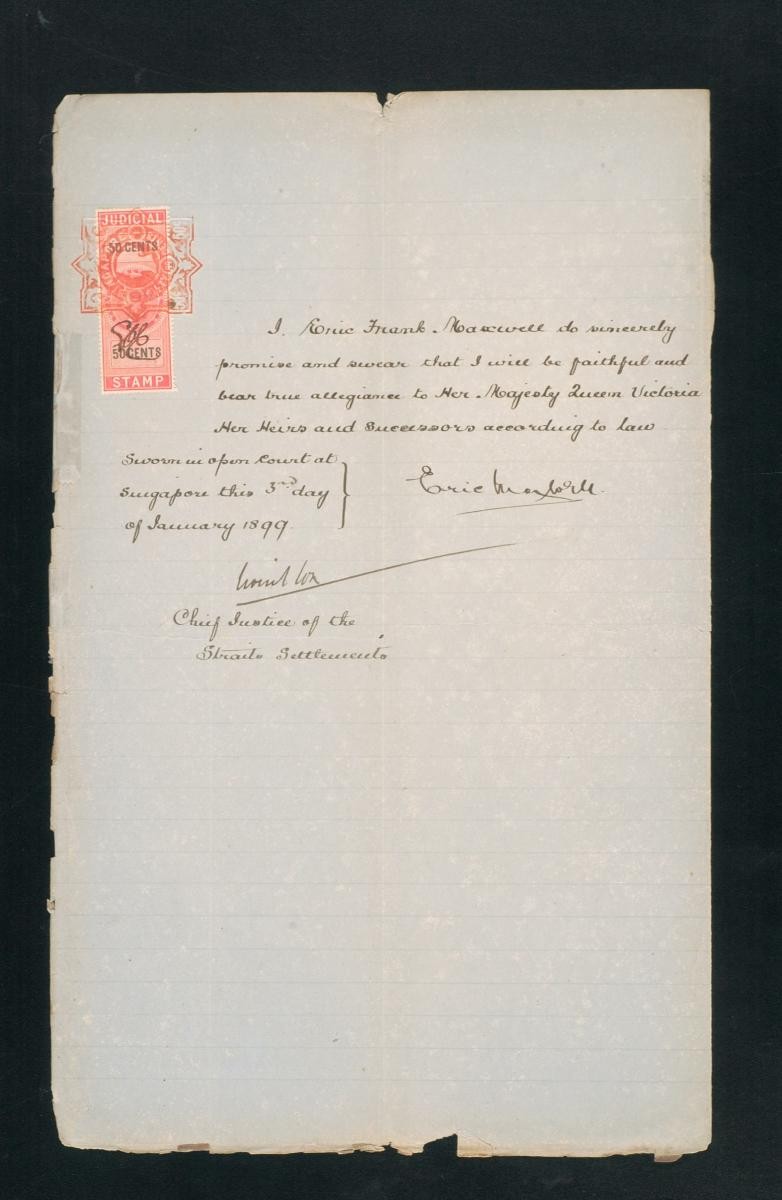 JUDICIAL
50 CENTS
50 CENTS
STAMP
I. Eric Frank Maxwell do sincerely
promise and swear that I will be faithful and
bear true allegiance to Her Majesty Queen Victoria
Her Heirs and Successors according to law
Sworn in open Court at
Singapore this 3rd day
of January 1899.
Eric Maxwell.
Chief Justice of the
Straits Settlements